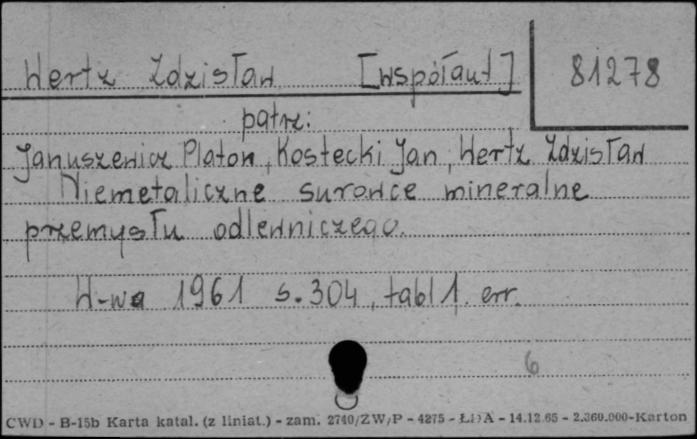 Hertz Zdzisław [współaut] 81278
patrz:
Januszewicz Platon, Kostecki Jan, Hertz Zdzisław
Niemetaliczne surowce mineralne
przemysłu odlewniczego.
W-wa 1961 s. 304, tabl 1, err.
6
CWD - B-15b Karta katal. (z liniat.) - zam. 2740/ZW/P - 4275 - ŁDA - 14.12.65 - 2.360.000-Karton